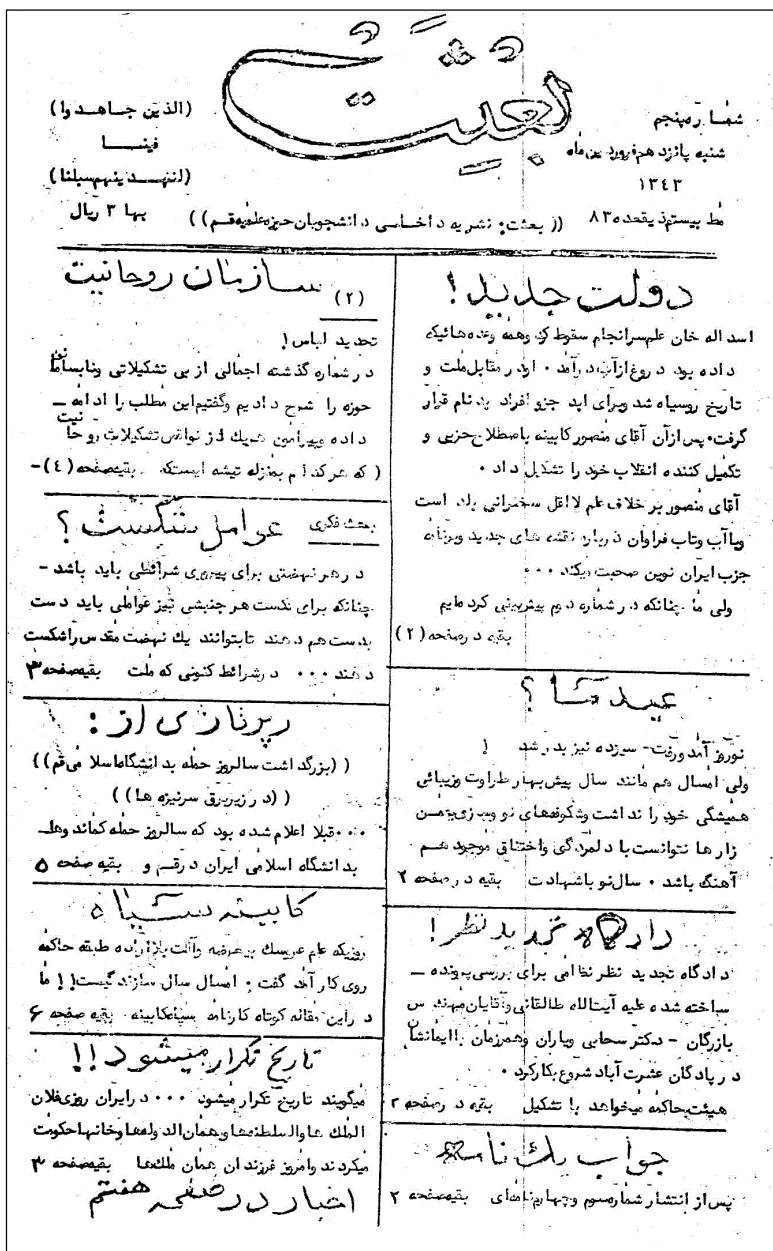 بعثت
شماره پنجم
شنبه پانزدهم فروردین ماه
۱۳۴۳
مط بیستم ذیقعده ۸۳
(الذین جاهدوا)
فینا
(لنهدینهم سبلنا)
بها ۳ ریال
((بعثت: نشریه داخلی دانشجویان حوزه علمیه قم))
دولت جدید!
اسداله خان علم سرانجام سقوط کرد وهمه وعده هائیکه
داده بود دروغ ازآب درآمد . او در مقابل ملت و
تاریخ روسیاه شد وبرای ابد جزو افراد بدنام قرار
گرفت. پس ازآن آقای منصور کابینه باصطلاح حزبی و
تکمیل کننده انقلاب خود را تشکیل داد .
آقای منصور بر خلاف علم لااقل سخنرانی بلد است
وباآب وتاب فراوان درباره نقشه های جدید وبرنامه
حزب ایران نوین صحبت میکند ...
ولی ما چنانکه در شماره دوم پیش بینی کرده ایم
بقیه در صفحه (۲)
عید ما؟
نوروز آمد ورفت - سیزده نیز بدر شد !
ولی امسال هم مانند سال پیش بهار طراوت وزیبائی
همیشگی خود را نداشت وشکوفه های نو وسبزی چمن
زارها نتوانست با دلمردگی واختناق موجود هم
آهنگ باشد . سال نو باشهادت بقیه در صفحه ۲
دادگاه تجدید نظر!
دادگاه تجدید نظر نظامی برای بررسی پرونده -
ساخته شده علیه آیت الله طالقانی وآقایان مهندس
بازرگان - دکتر سحابی ویاران وهمرزمان باایمانشان
در پادگان عشرت آباد شروع بکار کرد .
هیئت حاکمه میخواهد با تشکیل بقیه در صفحه ۲
جواب یک نامه
پس از انتشار شماره سوم وچهارم نامه ای بقیه صفحه ۲
سازمان روحانیت
(۲)
تحدید لباس!
در شماره گذشته اجمالی از بی تشکیلاتی ونابسامانی
حوزه را شرح دادیم وگفتیم این مطلب را ادامه -
داده وپیرامون هریک از نواقص تشکیلات روحانیت
(که هرکدام بمنزله تیشه ایستکه بقیه صفحه (۴) -
بحث فکری
عوامل شکست؟
در هر نهضتی برای پیروزی شرائطی باید باشد -
چنانکه برای شکست هر جنبشی نیز عواملی باید دست
بدست هم دهند تابتوانند یک نهضت مقدس راشکست
دهند ... درشرائط کنونی که ملت بقیه صفحه ۳
رپرتاژی از:
((بزرگداشت سالروز حمله بدانشگاه اسلامی قم))
((در زیر برق سرنیزه ها))
... قبلا اعلام شده بود که سالروز حمله کماندوها
بدانشگاه اسلامی ایران در قم و بقیه صفحه ۵
کابینه سیاه
روزیکه علم عروسک بی عرضه وآلت بلااراده طبقه حاکمه
روی کار آمد گفت : امسال سال سازندگیست !! ما
در این مقاله کوتاه کارنامه سیاه کابینه بقیه صفحه ۶
تاریخ تکرار میشود!!
میگویند تاریخ تکرار میشود ... در ایران روزی فلان
الملک ها والسلطنه ها وهمان الدوله ها وخانها حکومت
میکردند وامروز فرزندان همان ملک ها بقیه صفحه ۳
اخبار در صفحه هفتم